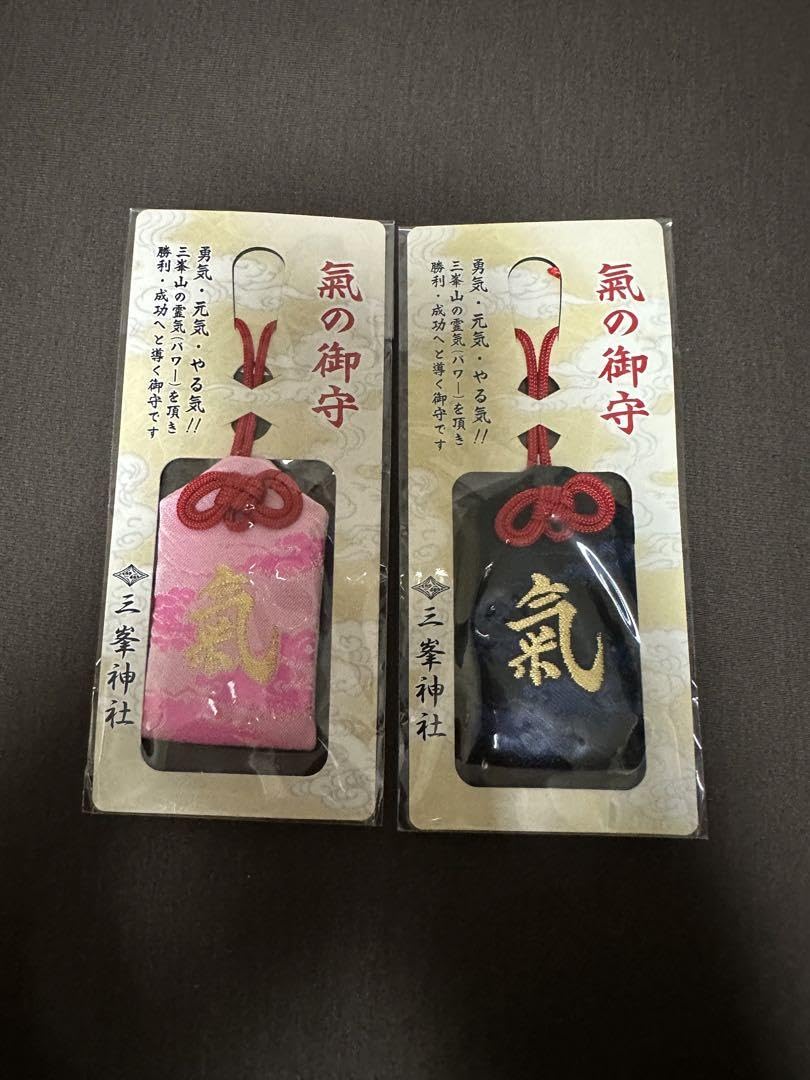 氣の御守
勇気・元気・やる気!!
三峯山の霊気(パワー)を頂き
勝利・成功へと導く御守です
氣
三峯神社
氣の御守
勇気・元気・やる気!!
三峯山の霊気(パワー)を頂き
勝利・成功へと導く御守です
氣
三峯神社